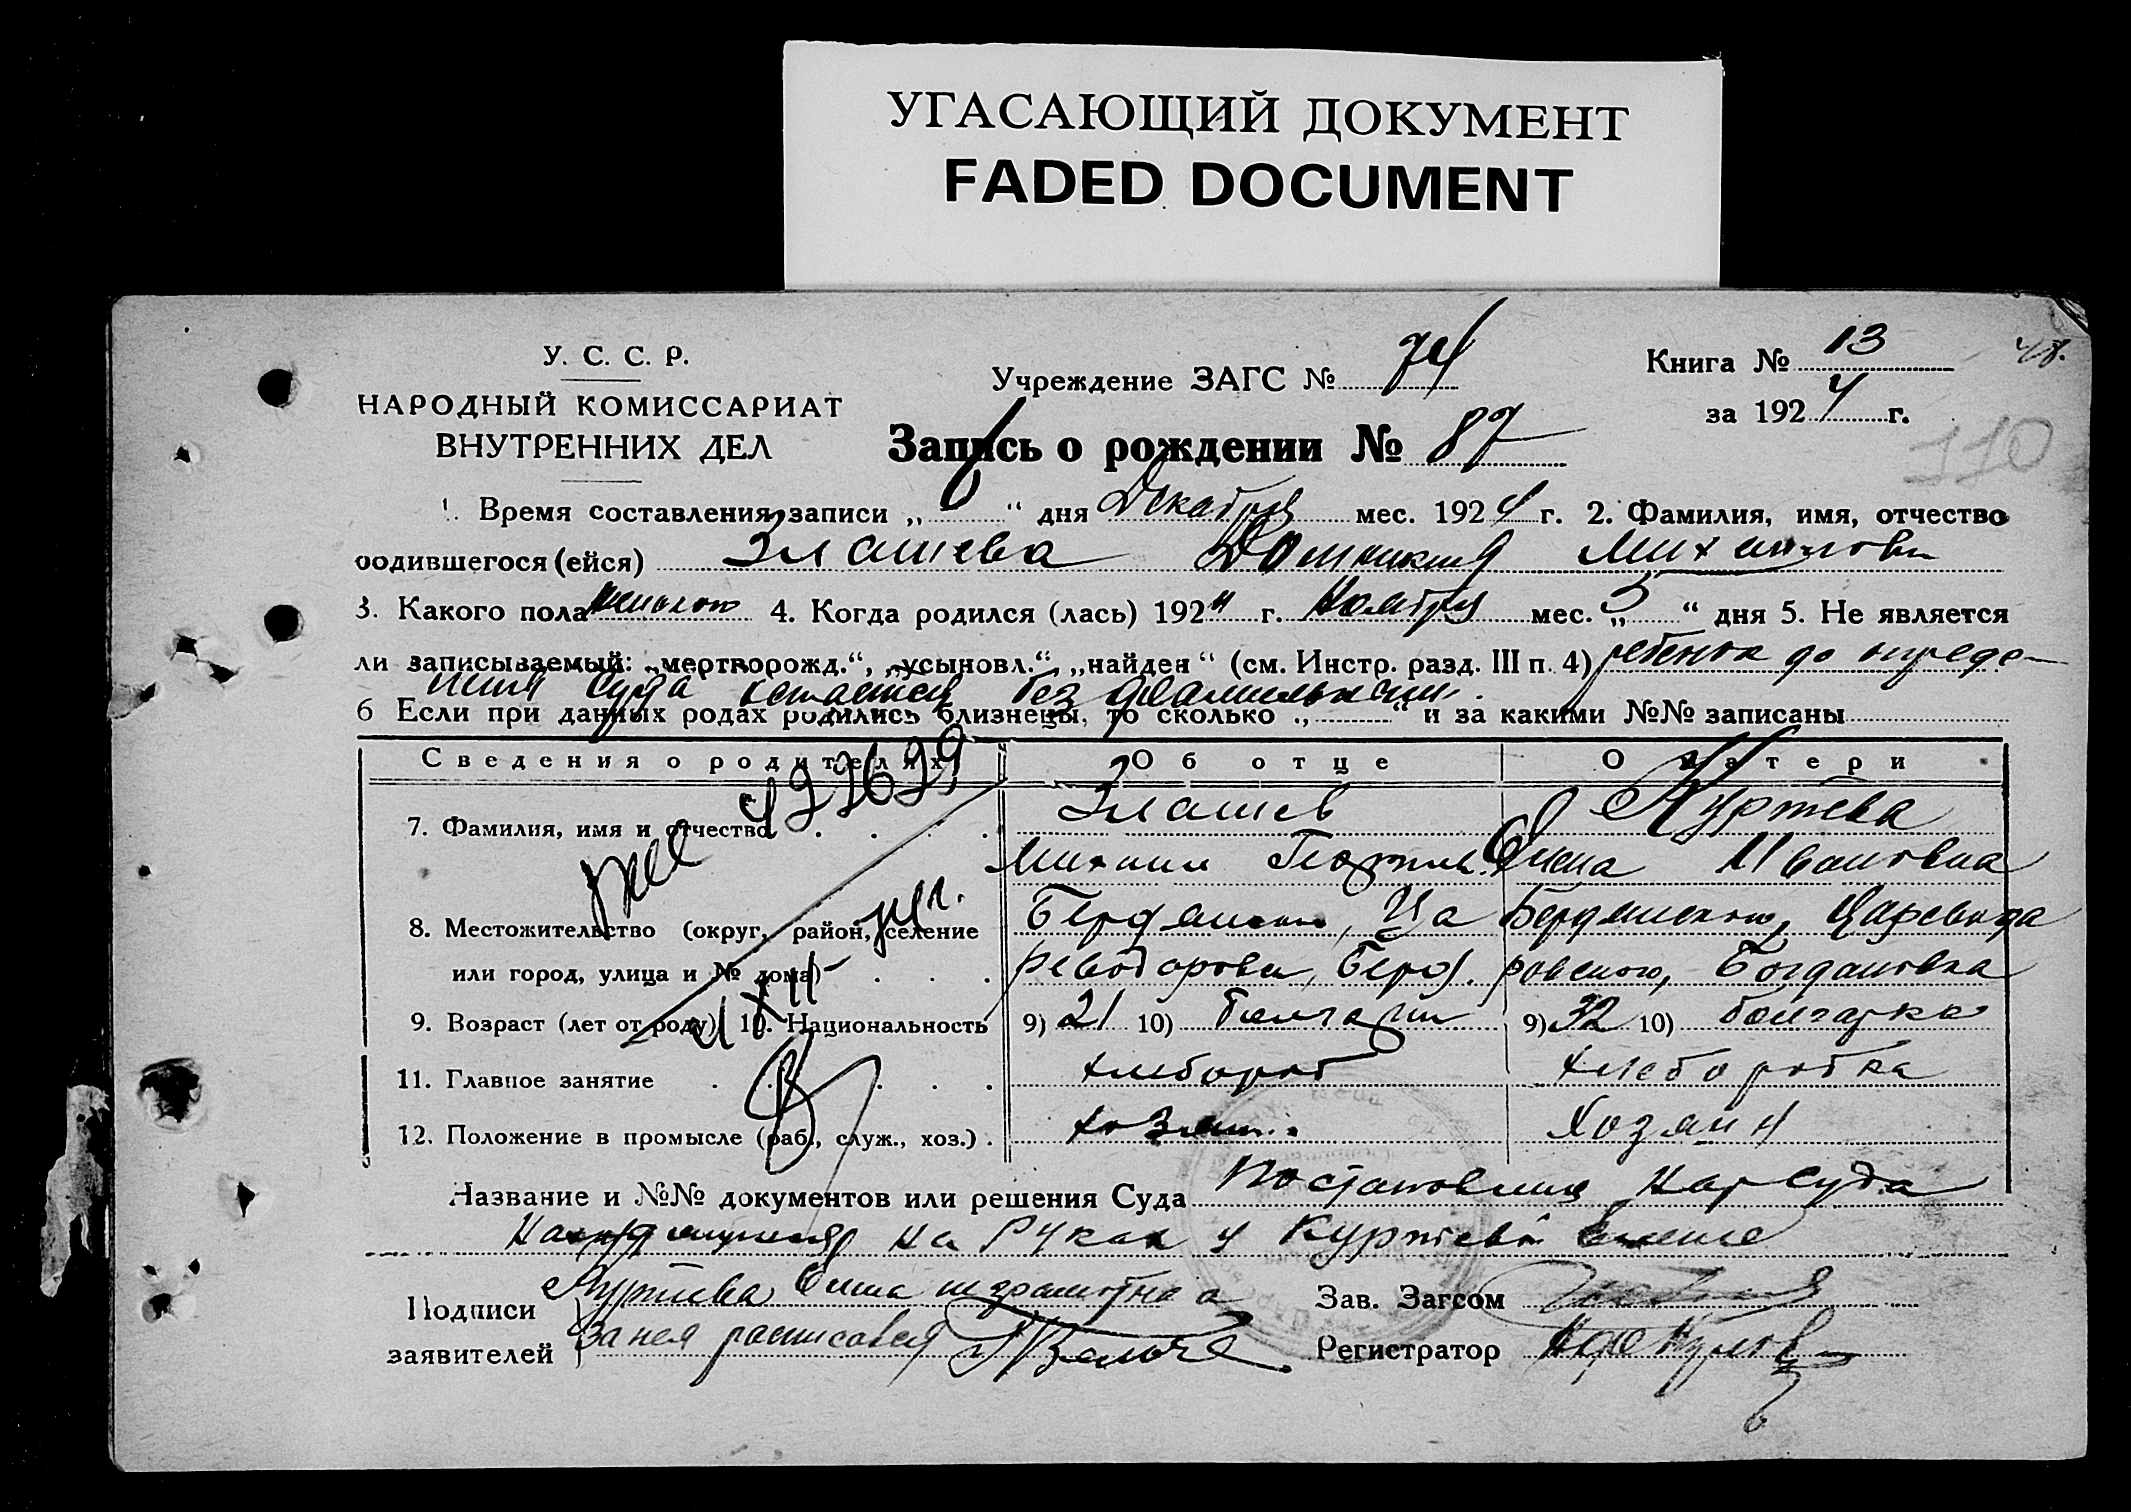 УГАСАЮЩИЙ ДОКУМЕНТ
FADED DOCUMENT
У. С. С. Р.
НАРОДНЫЙ КОМИССАРИАТ
ВНУТРЕННИХ ДЕЛ
Учреждение ЗАГС № 74
Книга № 13
за 1924 г.
110
Запись о рождении № 87
1. Время составления записи „6“ дня Декабря мес. 1924 г. 2. Фамилия, имя, отчество
родившегося (ейся) Златева
3. Какого пола женского 4. Когда родился (лась) 1924 г. Ноября мес. „5“ дня 5. Не является
ли записываемый: „мертворожд.“, „усыновл.“, „найден“ (см. Инстр. разд. III п. 4) ребенок до опреде-
ления суда остается без
6 Если при данных родах родились близнецы, то сколько „ “ и за какими №№ записаны
Сведения о родителях Об отце О матери
7. Фамилия, имя и отчество Златев Куртева
Михаил Елена Ивановна
8. Местожительство (округ, район, селение Бердянского, Ца Бердянского, Царевода
или город, улица и № дома) реводаровск, Берд. ровского, Богдановка
9. Возраст (лет от роду) 10. Национальность 9) 21 10) болгарин 9) 32 10) болгарка
11. Главное занятие хлебороб хлеборобка
12. Положение в промысле (раб., служ., хоз.) хозяин Хозяин
Название и №№ документов или решения Суда Постановление Нарсуда
на руках у Куртевой Елене
Подписи Куртева Елена неграмотна а Зав. Загсом
заявителей за нея росписався Регистратор